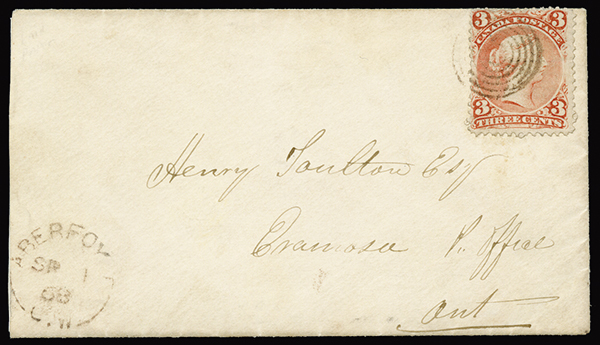 3 CANADA POSTAGE 3
3 THREE CENTS 3
Henry Toulton Esq
Eramosa P. Office
Ont
ABERFOY
SP 1
68
C.W